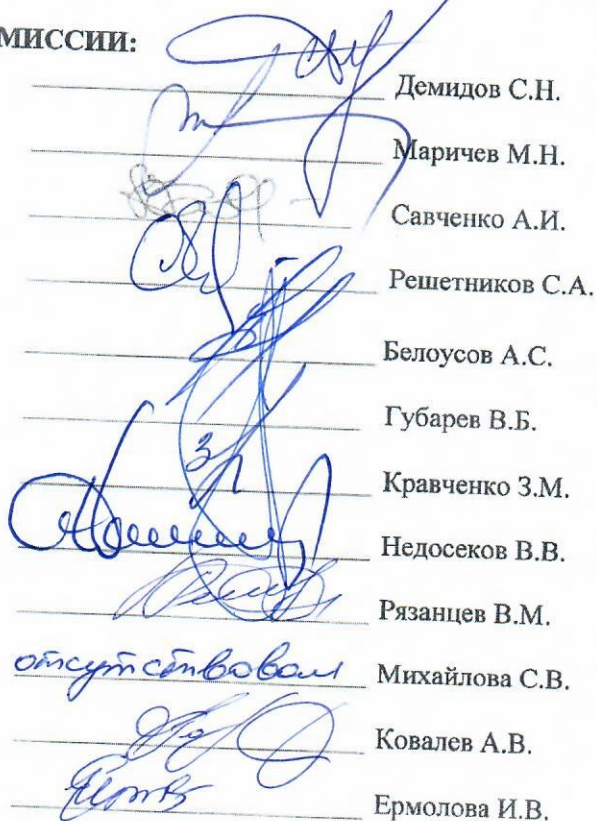 МИССИИ:
Демидов С.Н.
Маричев М.Н.
Савченко А.И.
Решетников С.А.
Белоусов А.С.
Губарев В.Б.
Кравченко З.М.
Недосеков В.В.
Рязанцев В.М.
отсутствовал Михайлова С.В.
Ковалев А.В.
Ермолова И.В.